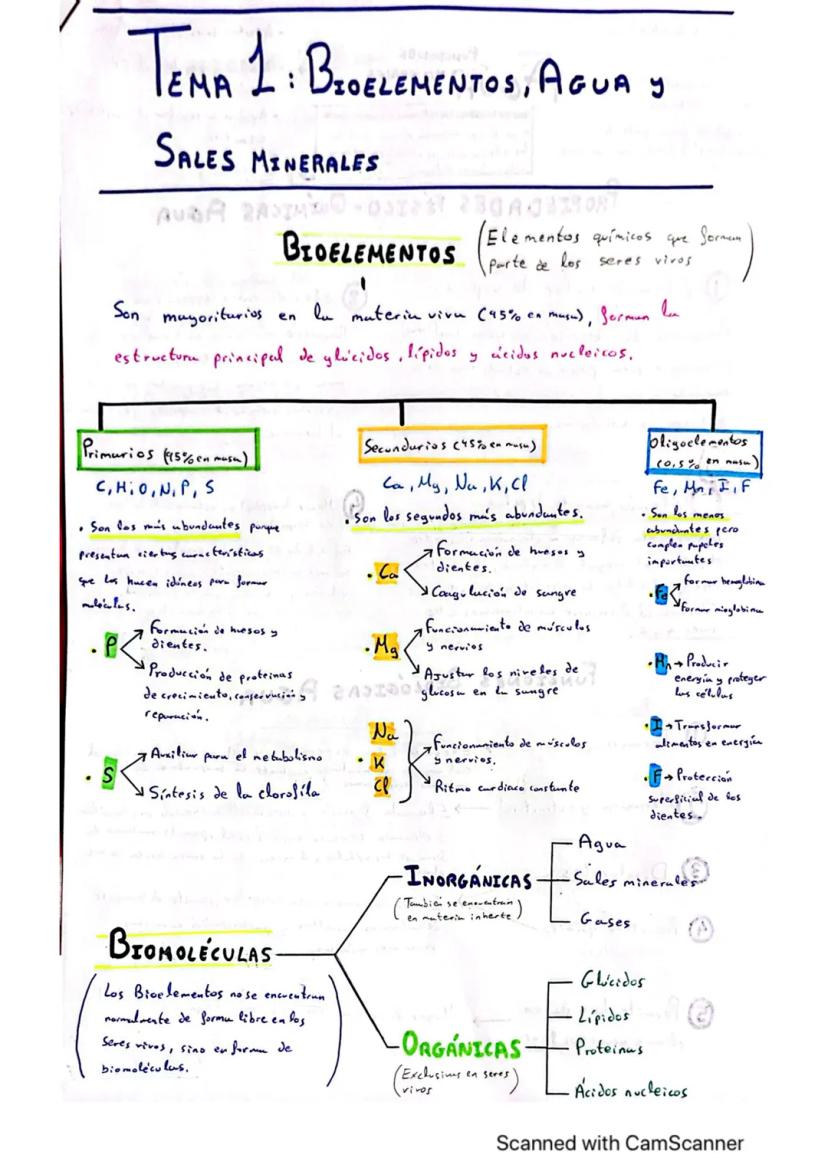 TEMA 1: BIOELEMENTOS, AGUA y
SALES MINERALES
BIOELEMENTOS
(Elementos químicos que forman
parte de los seres vivos)
Son mayoritarios en la materia viva (95% en masa), forman la
estructura principal de glúcidos, lípidos y ácidos nucleicos.
Primarios (95% en masa)
C, H, O, N, P, S
• Son los más abundantes porque
presentan ciertas características
que los hacen idóneos para formar
moléculas.
• P
Formación de huesos y
dientes.
Producción de proteínas
de crecimiento, conservación y
reparación.
• S
Auxiliar para el metabolismo
Síntesis de la clorofila
Secundarios (45% en masa)
Ca, Mg, Na, K, Cl
• Son los segundos más abundantes.
• Ca
Formación de huesos y
dientes.
Coagulación de sangre
• Mg
Funcionamiento de músculos
y nervios
Ajustar los niveles de
glucosa en la sangre
Na
• K
Cl
Funcionamiento de músculos
y nervios.
Ritmo cardiaco constante
Oligoelementos
(0,5% en masa)
Fe, Mn, I, F
• Son los menos
abundantes pero
cumplen papeles
importantes
• Fe
Formar hemoglobina
Formar mioglobina
• Mn → Producir
energía y proteger
las células
• I → Transformar
alimentos en energía
• F → Protección
superficial de los
dientes.
BIOMOLÉCULAS
(Los Bioelementos no se encuentran
normalmente de forma libre en los
seres vivos, sino en forma de
biomoléculas.)
INORGÁNICAS
(También se encuentran
en materia inherte)
Agua
Sales minerales
Gases
ORGÁNICAS
(Exclusivas en seres
vivos)
Glúcidos
Lípidos
Proteínas
Ácidos nucleicos
Scanned with CamScanner